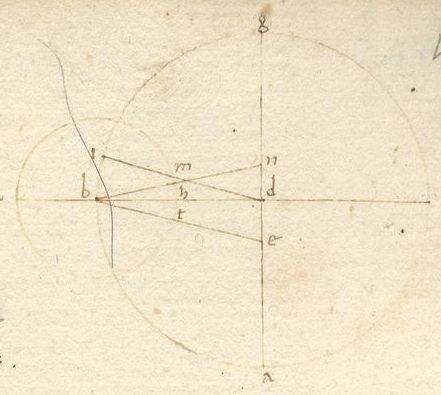 g
m n
b h d
t e
a